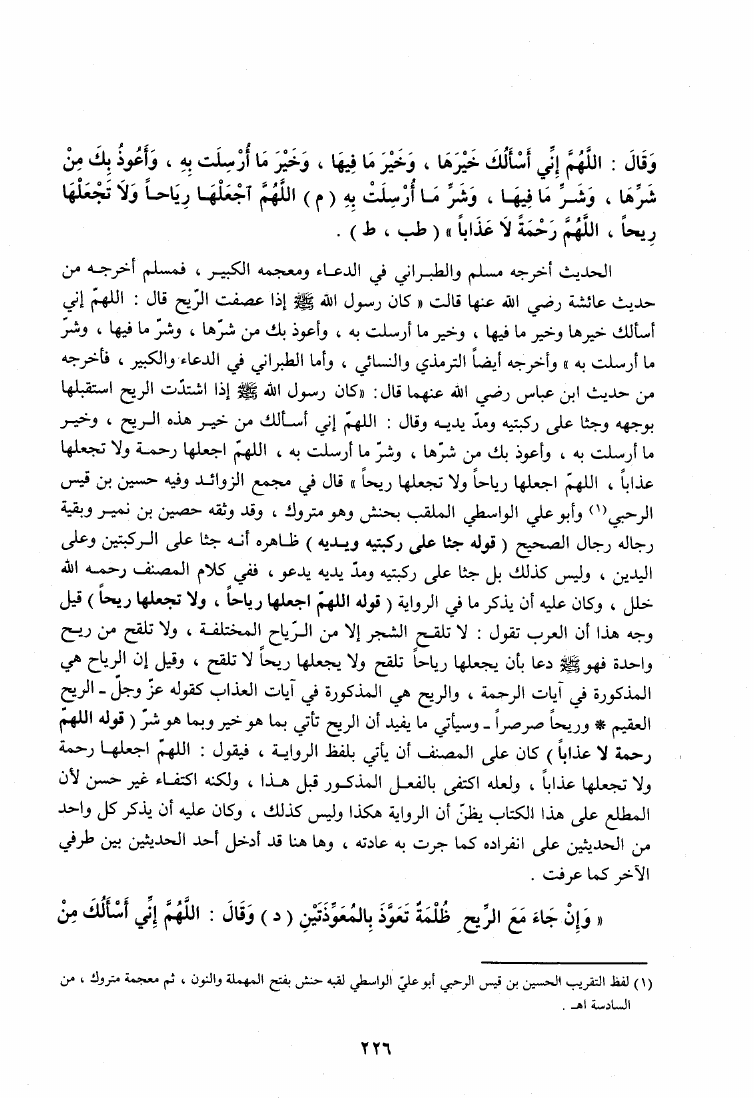 وَقَالَ : اللَّهُمَّ إِنِّي أَسْأَلُكَ خَيْرَهَا ، وَخَيْرَ مَا فِيهَا ، وَخَيْرَ مَا أُرْسِلَت بِهِ ، وَأَعُوذُ بِكَ مِنْ
شَرِّهَا ، وَشَـرِّ مَا فِيهَـا ، وَشَرِّ مَـا أُرْسِلَتْ بِهِ ( م ) اللَّهُمَّ آجْعَلْهَـا رِيَاحـاً وَلاَ تَجْعَلْهَا
رِيحاً ، اللَّهُمَّ رَحْمَةً لاَ عَذَاباً » ( طب ، ط ) .
الحديث أخرجه مسلم والطبـراني في الدعـاء ومعجمه الكبيـر ، فمسلم أخرجـه من
حديث عائشة رضي الله عنها قالت « كان رسول الله ﷺ إذا عصفت الرّيح قال : اللهمّ إني
أسألك خيرها وخير ما فيها ، وخير ما أرسلت به ، وأعوذ بك من شرّها ، وشرّ ما فيها ، وشرّ
ما أرسلت به » وأخرجه أيضاً الترمذي والنسائي ، وأما الطبراني في الدعاء والكبير ، فأخرجه
من حديث ابن عباس رضي الله عنهما قال: «كان رسول الله ﷺ إذا اشتدّت الريح استقبلها
بوجهه وجثا على ركبتيه ومدّ يديـه وقال : اللهمّ إني أسـألك من خيـر هذه الـريح ، وخيـر
ما أرسلت به ، وأعوذ بك من شرّها ، وشرّ ما أرسلت به ، اللهمّ اجعلها رحمـة ولا تجعلها
عذاباً ، اللهمّ اجعلها رياحاً ولا تجعلها ريحاً » قال في مجمع الزوائـد وفيه حسين بن قيس
الرحبي(١) وأبو علي الواسطي الملقب بحنش وهو متروك ، وقد وثقه حصين بن نميـر وبقية
رجاله رجال الصحيح ( قوله جثا على ركبتيه ويـديه ) ظـاهره أنـه جثا على الـركبتين وعلى
اليدين ، وليس كذلك بل جثا على ركبتيه ومدّ يديه يدعو ، ففي كلام المصنف رحمـه الله
خلل ، وكان عليه أن يذكر ما في الرواية ( قوله اللهمّ اجعلها رياحاً ، ولا تجعلها ريحاً ) قيل
وجه هذا أن العرب تقول : لا تلقـح الشجر إلا من الـرّياح المختلفـة ، ولا تلقح من ريـح
واحدة فهو ﷺ دعا بأن يجعلها رياحاً تلقح ولا يجعلها ريحاً لا تلقح ، وقيل إن الرياح هي
المذكورة في آيات الرحمة ، والريح هي المذكورة في آيات العذاب كقوله عزّ وجلّ ـ الريح
العقيم * وريحاً صرصراً ـ وسيأتي ما يفيد أن الريح تأتي بما هو خير وبما هو شرّ ( قوله اللهمّ
رحمة لا عذاباً ) كان على المصنف أن يأتي بلفظ الروايـة ، فيقول : اللهمّ اجعلهـا رحمة
ولا تجعلها عذاباً ، ولعله اكتفى بالفعـل المذكـور قبل هـذا ، ولكنه اكتفـاء غير حسن لأن
المطلع على هذا الكتاب يظنّ أن الرواية هكذا وليس كذلك ، وكان عليه أن يذكر كل واحد
من الحديثين على انفراده كما جرت به عادته ، وها هنا قد أدخل أحد الحديثين بين طرفي
الآخر كما عرفت .
« وَإِنْ جَاءَ مَعَ الرِّيحِ ظُلْمَةٌ تَعَوَّذَ بِالمُعَوِّذَتَيْنِ ( د ) وَقَالَ : اللَّهُمَّ إِنِّي أَسْأَلُكَ مِنْ
(١) لفظ التقريب الحسين بن قيس الرحبي أبو عليّ الواسطي لقبه حنش بفتح المهملة والنون ، ثم معجمة متروك ، من
السادسة اهـ .
٢٢٦